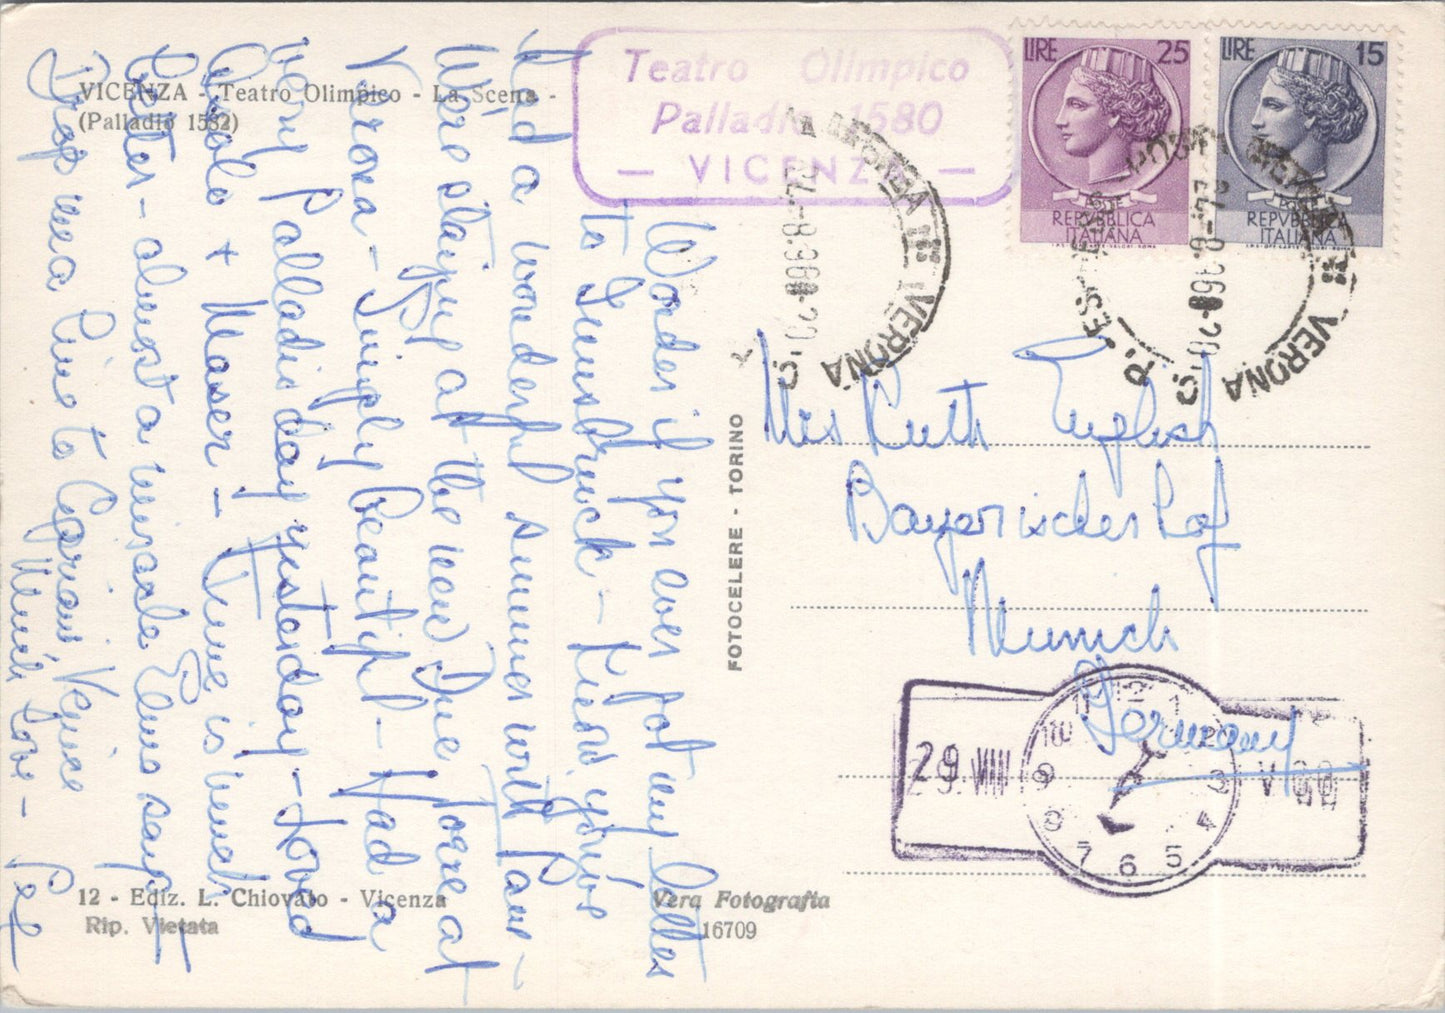 VICENZA - Teatro Olimpico - La Scena -
(Palladio 1582)
Teatro Olimpico
Palladio 1580
— VICENZA —
LIRE 25
REPVBBLICA
ITALIANA
LIRE 15
POSTE
REPVBBLICA
ITALIANA
VERONA
VERONA
Wonder if you ever got my letter
to Innsbruck - Know you've
had a wonderful summer with Pam -
We're staying at the new Due Torre at
Verona - Simply beautiful - Had a
very Palladio day yesterday - Loved
+ Maser - Time is much
better - almost a miracle Elmo says
Drop me a line to Cipriani, Venice
Much love - Peg
FOTOCELERE - TORINO
Miss Ruth English
Bayerischer Hof
Munich
Germany
29 VIII
12 1 2 3 4 5 6 7 8 9 10 11
12 - Ediz. L. Chiovato - Vicenza
Rip. Vietata
Vera Fotografia
16709